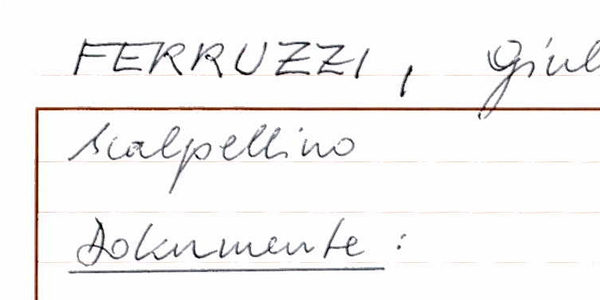 FERRUZZI, Giul
Scalpellino
Dokumente: